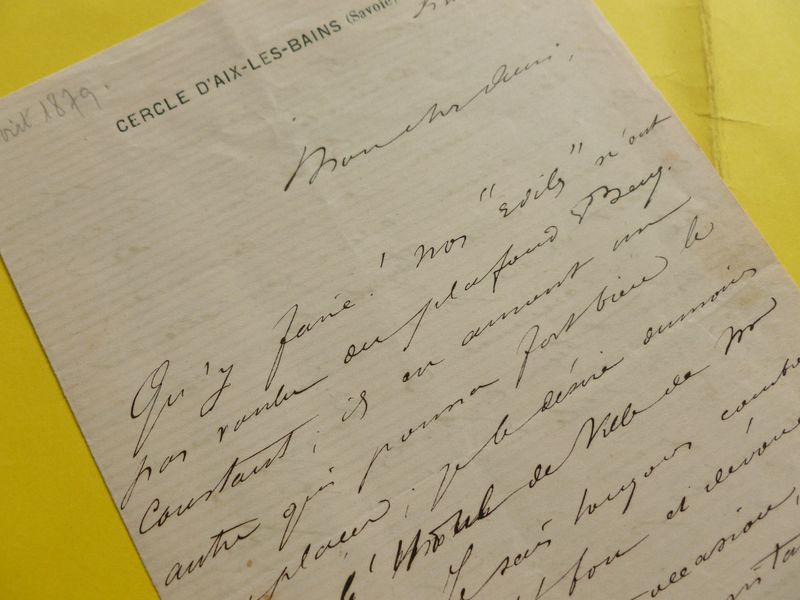 août 1879.
CERCLE D'AIX-LES-BAINS (Savoie)
Mon cher ami,
Qu'y faire! nos "edils" n'ont
pas voulu du plafond Benj.
Constant; ils en auront un
autre qui pourra fort bien le
placer; je le désire au moins
l'Hôtel de Ville de
Je sais toujours
bon et dévoué
occasion,